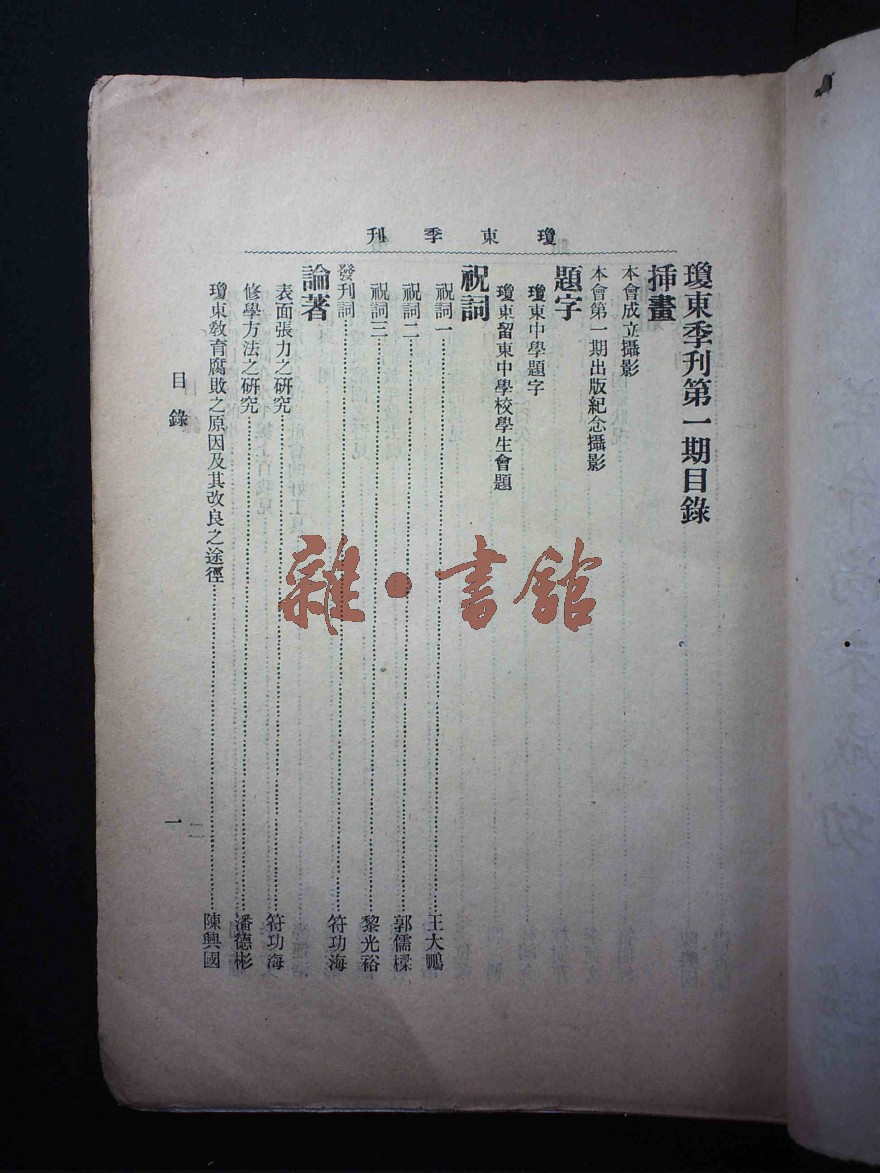 瓊東季刊
瓊東季刊第一期目錄
插畫
本會成立攝影
本會第一期出版紀念攝影
題字
瓊東中學題字
瓊東留東中學校學生會題
祝詞
祝詞一……王大鵬
祝詞二……郭儒樑
祝詞三……黎光裕
發刊詞……符功海
論著
表面張力之硏究……符功海
修學方法之硏究……潘德彬
瓊東教育腐敗之原因及其改良之途徑……陳興國
目錄
一
雜·書館